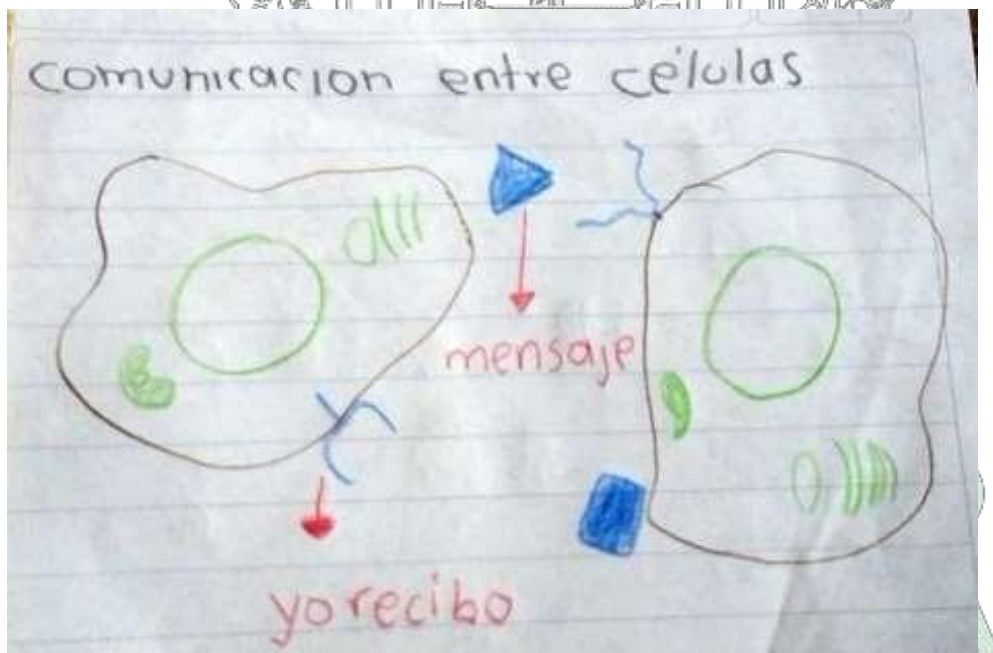 comunicacion entre células
mensaje
yo recibo